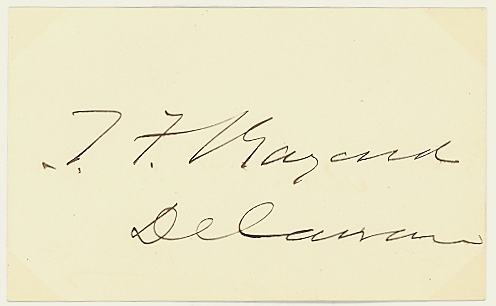 T. F. Bayard
Delaware